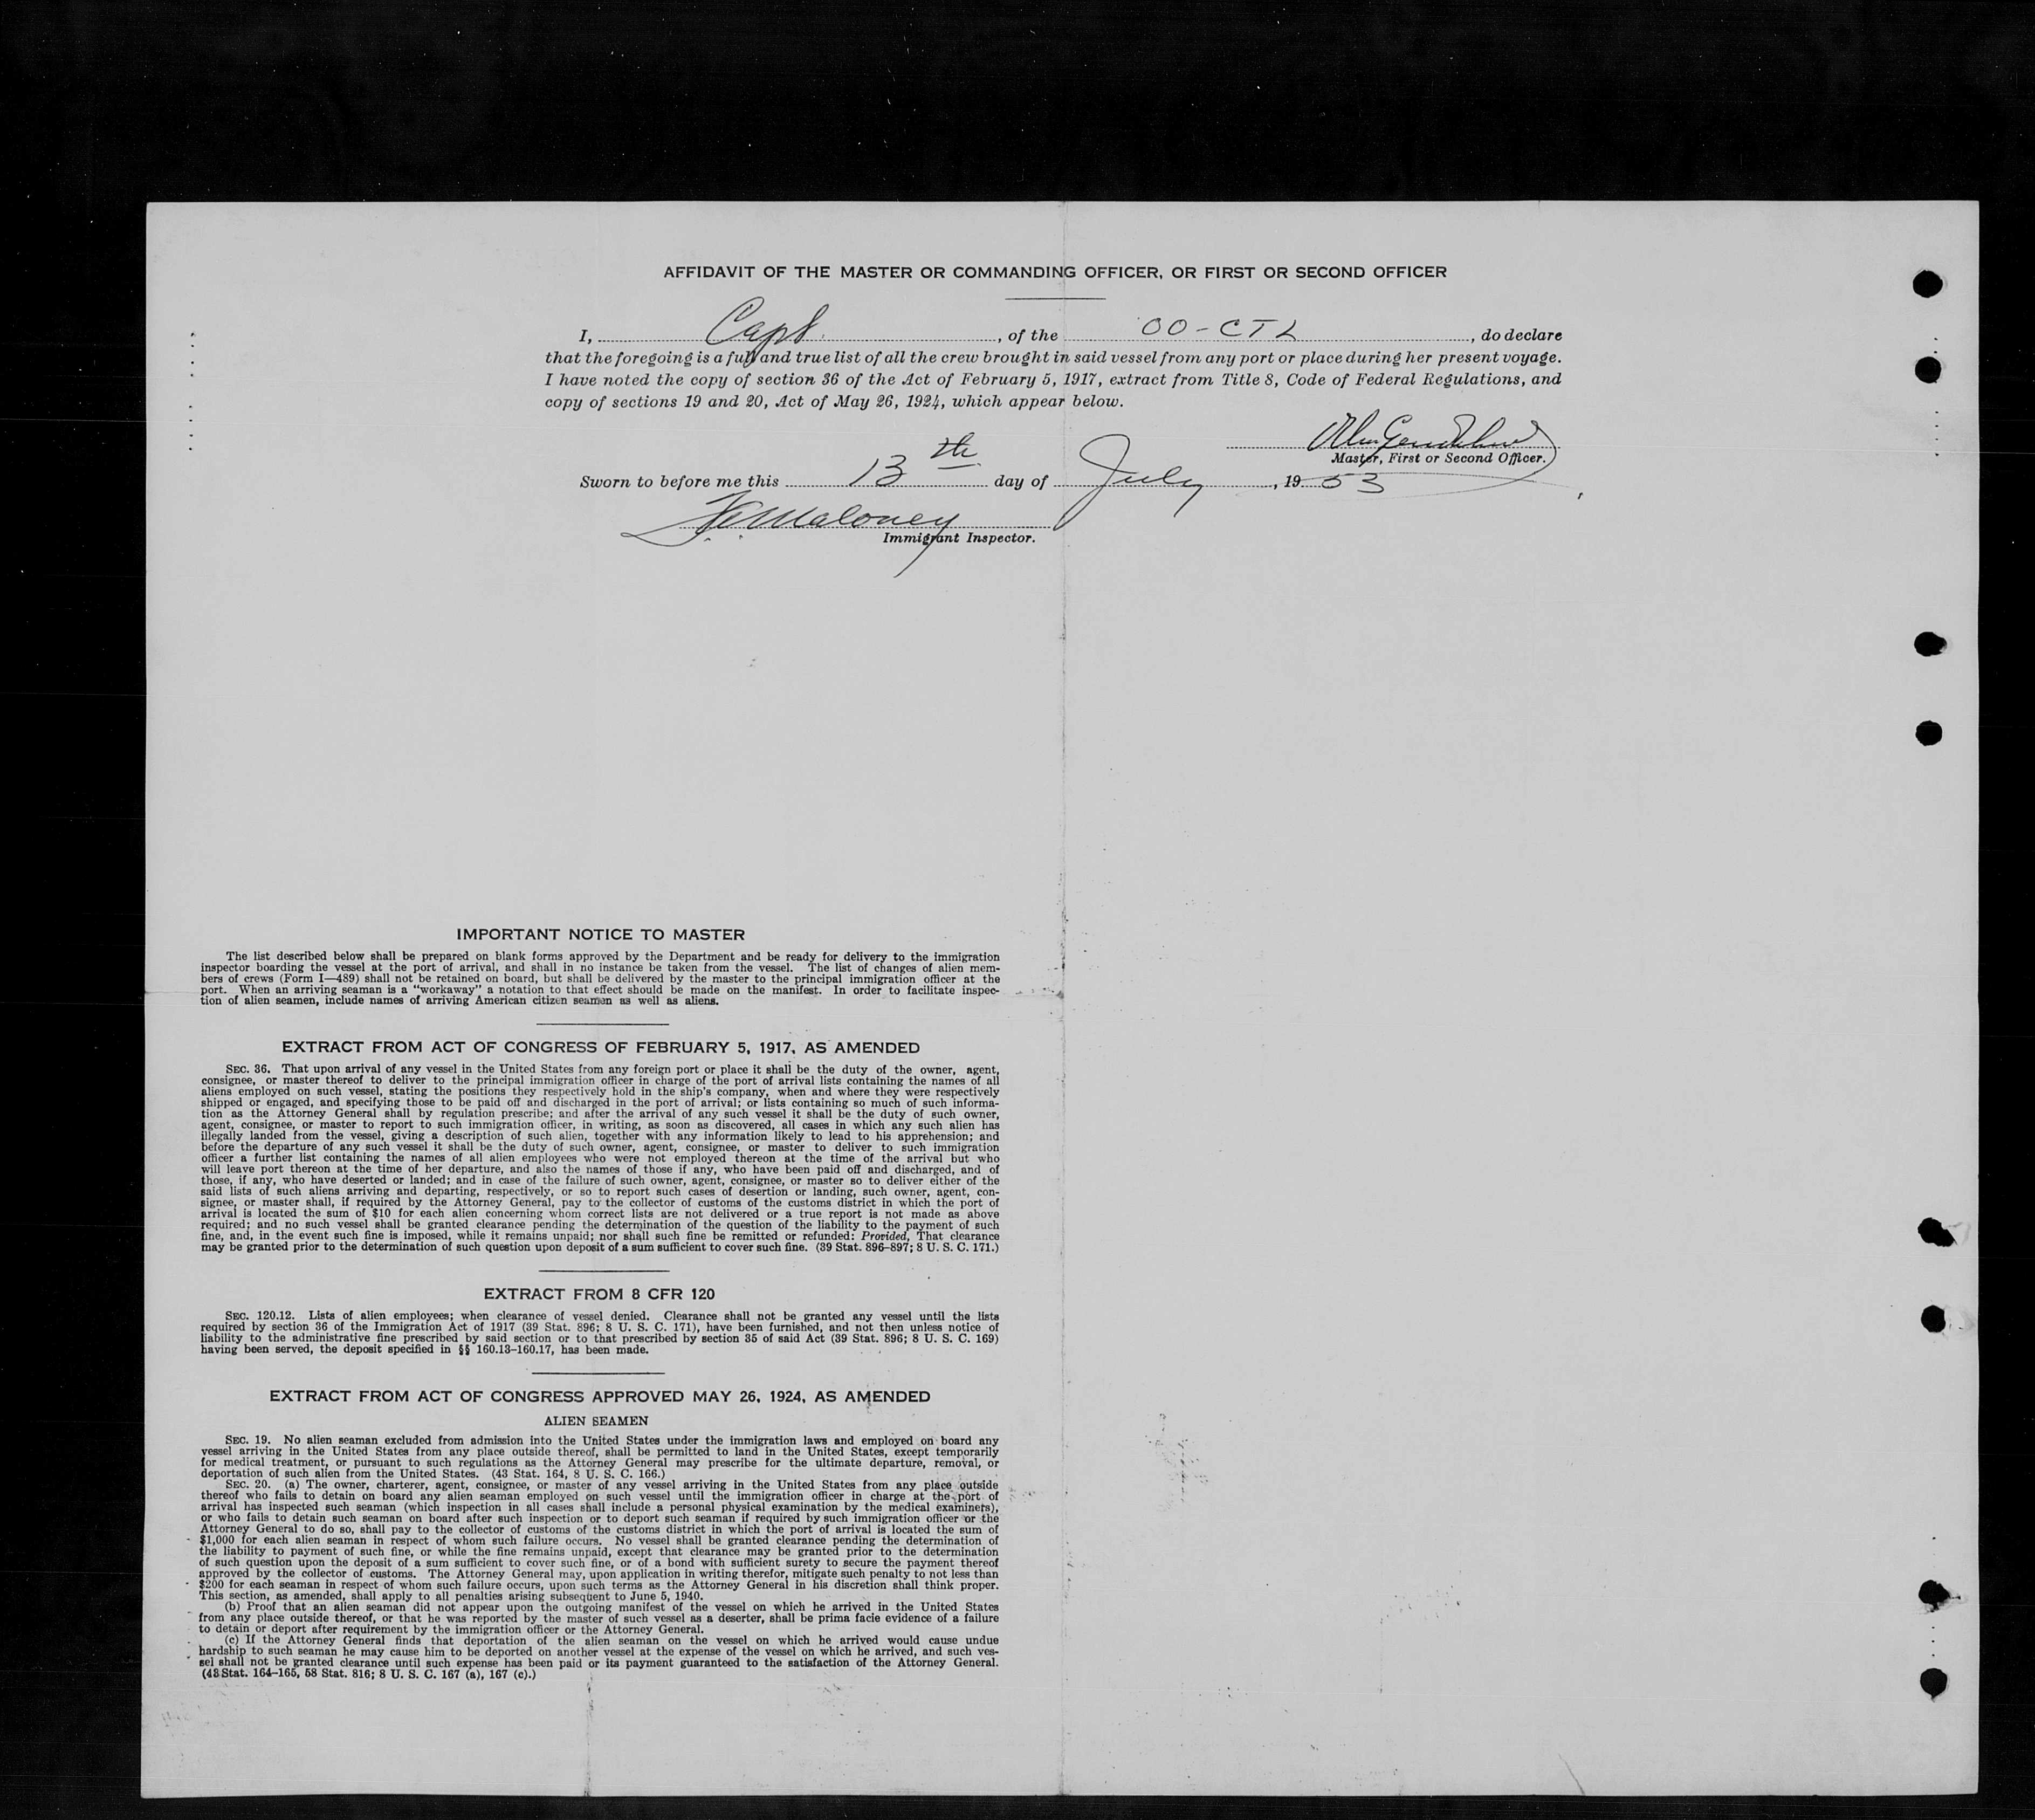 AFFIDAVIT OF THE MASTER OR COMMANDING OFFICER, OR FIRST OR SECOND OFFICER
I, Capt , of the OO-CTL , do declare
that the foregoing is a full and true list of all the crew brought in said vessel from any port or place during her present voyage.
I have noted the copy of section 36 of the Act of February 5, 1917, extract from Title 8, Code of Federal Regulations, and
copy of sections 19 and 20, Act of May 26, 1924, which appear below.
Master, First or Second Officer.
Sworn to before me this 13th day of July , 19 53
Maloney
Immigrant Inspector.
IMPORTANT NOTICE TO MASTER
The list described below shall be prepared on blank forms approved by the Department and be ready for delivery to the immigration
inspector boarding the vessel at the port of arrival, and shall in no instance be taken from the vessel. The list of changes of alien mem-
bers of crews (Form I—489) shall not be retained on board, but shall be delivered by the master to the principal immigration officer at the
port. When an arriving seaman is a "workaway" a notation to that effect should be made on the manifest. In order to facilitate inspec-
tion of alien seamen, include names of arriving American citizen seamen as well as aliens.
EXTRACT FROM ACT OF CONGRESS OF FEBRUARY 5, 1917, AS AMENDED
SEC. 36. That upon arrival of any vessel in the United States from any foreign port or place it shall be the duty of the owner, agent,
consignee, or master thereof to deliver to the principal immigration officer in charge of the port of arrival lists containing the names of all
aliens employed on such vessel, stating the positions they respectively hold in the ship's company, when and where they were respectively
shipped or engaged, and specifying those to be paid off and discharged in the port of arrival; or lists containing so much of such informa-
tion as the Attorney General shall by regulation prescribe; and after the arrival of any such vessel it shall be the duty of such owner,
agent, consignee, or master to report to such immigration officer, in writing, as soon as discovered, all cases in which any such alien has
illegally landed from the vessel, giving a description of such alien, together with any information likely to lead to his apprehension; and
before the departure of any such vessel it shall be the duty of such owner, agent, consignee, or master to deliver to such immigration
officer a further list containing the names of all alien employees who were not employed thereon at the time of the arrival but who
will leave port thereon at the time of her departure, and also the names of those if any, who have been paid off and discharged, and of
those, if any, who have deserted or landed; and in case of the failure of such owner, agent, consignee, or master so to deliver either of the
said lists of such aliens arriving and departing, respectively, or so to report such cases of desertion or landing, such owner, agent, con-
signee, or master shall, if required by the Attorney General, pay to the collector of customs of the customs district in which the port of
arrival is located the sum of $10 for each alien concerning whom correct lists are not delivered or a true report is not made as above
required; and no such vessel shall be granted clearance pending the determination of the question of the liability to the payment of such
fine, and, in the event such fine is imposed, while it remains unpaid; nor shall such fine be remitted or refunded: Provided, That clearance
may be granted prior to the determination of such question upon deposit of a sum sufficient to cover such fine. (39 Stat. 896–897; 8 U. S. C. 171.)
EXTRACT FROM 8 CFR 120
SEC. 120.12. Lists of alien employees; when clearance of vessel denied. Clearance shall not be granted any vessel until the lists
required by section 36 of the Immigration Act of 1917 (39 Stat. 896; 8 U. S. C. 171), have been furnished, and not then unless notice of
liability to the administrative fine prescribed by said section or to that prescribed by section 35 of said Act (39 Stat. 896; 8 U. S. C. 169)
having been served, the deposit specified in §§ 160.13–160.17, has been made.
EXTRACT FROM ACT OF CONGRESS APPROVED MAY 26, 1924, AS AMENDED
ALIEN SEAMEN
SEC. 19. No alien seaman excluded from admission into the United States under the immigration laws and employed on board any
vessel arriving in the United States from any place outside thereof, shall be permitted to land in the United States, except temporarily
for medical treatment, or pursuant to such regulations as the Attorney General may prescribe for the ultimate departure, removal, or
deportation of such alien from the United States. (43 Stat. 164, 8 U. S. C. 166.)
SEC. 20. (a) The owner, charterer, agent, consignee, or master of any vessel arriving in the United States from any place outside
thereof who fails to detain on board any alien seaman employed on such vessel until the immigration officer in charge at the port of
arrival has inspected such seaman (which inspection in all cases shall include a personal physical examination by the medical examiners),
or who fails to detain such seaman on board after such inspection or to deport such seaman if required by such immigration officer or the
Attorney General to do so, shall pay to the collector of customs of the customs district in which the port of arrival is located the sum of
$1,000 for each alien seaman in respect of whom such failure occurs. No vessel shall be granted clearance pending the determination of
the liability to payment of such fine, or while the fine remains unpaid, except that clearance may be granted prior to the determination
of such question upon the deposit of a sum sufficient to cover such fine, or of a bond with sufficient surety to secure the payment thereof
approved by the collector of customs. The Attorney General may, upon application in writing therefor, mitigate such penalty to not less than
$200 for each seaman in respect of whom such failure occurs, upon such terms as the Attorney General in his discretion shall think proper.
This section, as amended, shall apply to all penalties arising subsequent to June 5, 1940.
(b) Proof that an alien seaman did not appear upon the outgoing manifest of the vessel on which he arrived in the United States
from any place outside thereof, or that he was reported by the master of such vessel as a deserter, shall be prima facie evidence of a failure
to detain or deport after requirement by the immigration officer or the Attorney General.
(c) If the Attorney General finds that deportation of the alien seaman on the vessel on which he arrived would cause undue
hardship to such seaman he may cause him to be deported on another vessel at the expense of the vessel on which he arrived, and such ves-
sel shall not be granted clearance until such expense has been paid or its payment guaranteed to the satisfaction of the Attorney General.
(43 Stat. 164–165, 58 Stat. 816; 8 U. S. C. 167 (a), 167 (c).)